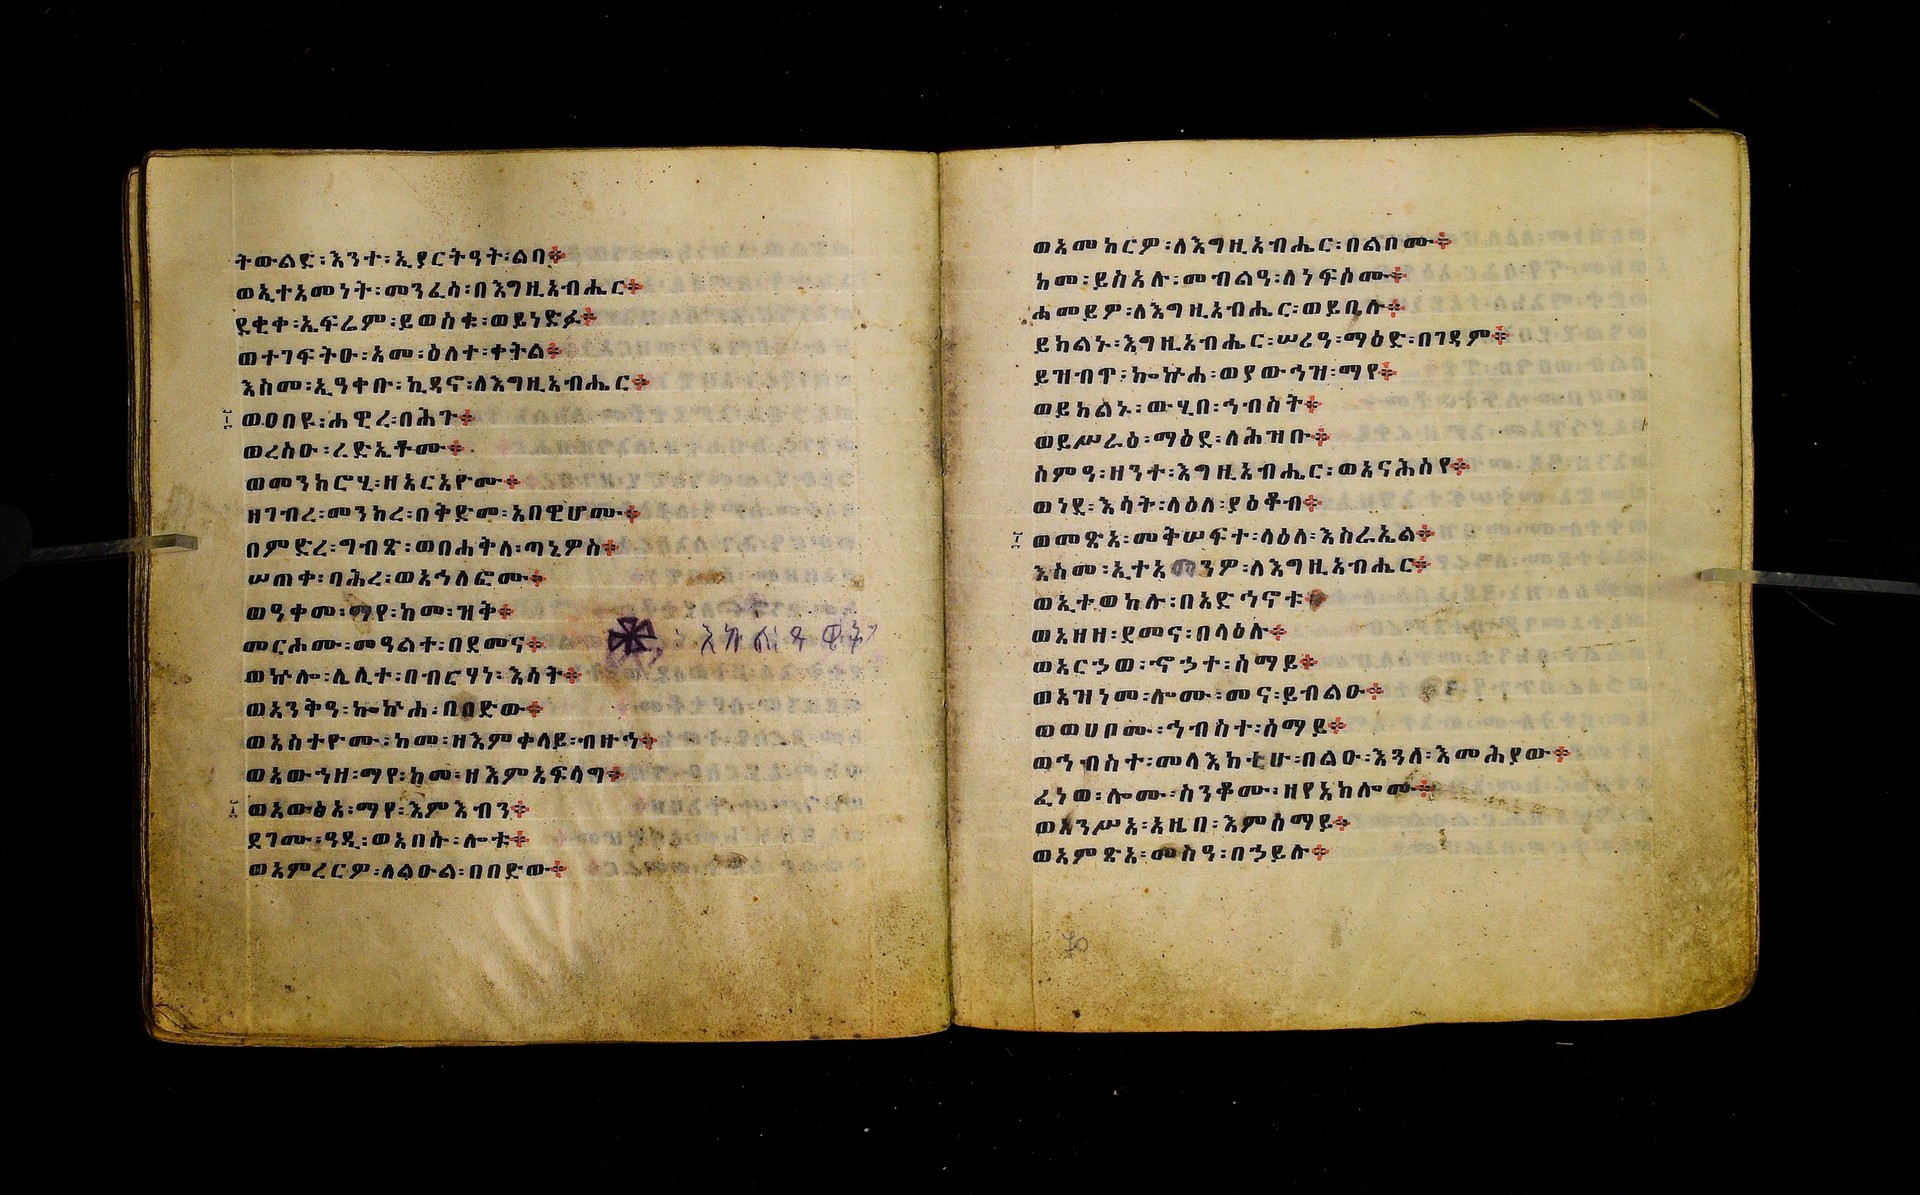 ትውልድ፡እንተ፡ኢያርትዓት፡ልበ፨
ወኢተአመነት፡መንፈሳ፡በእግዚአብሔር፨
ደቂቀ፡ኤፍሬም፡ይወስቁ፡ወይነድፉ፨
ወተገፍትዑ፡አመ፡ዕለተ፡ቀትል፨
እስመ፡ኢዓቀቡ፡ኪዳኖ፡ለእግዚአብሔር፨
ወዐበዩ፡ሐዊረ፡በሕጉ፨
ወረስዑ፡ረድኤቶሙ፨
ወመንክሮሂ፡ዘአርአዮሙ፨
ዘገብረ፡መንክረ፡በቅድመ፡አበዊሆሙ፨
በምድረ፡ግብጽ፡ወበሐቅለ፡ጣኔዎስ፨
ሠጠቀ፡ባሕረ፡ወአኅለፎሙ፨
ወዓቀመ፡ማየ፡ከመ፡ዝቅ፨
መርሐሙ፡መዓልተ፡በደመና፨
ወኵሎ፡ሌሊተ፡በብርሃነ፡እሳት፨
ወአንቅዓ፡ኰኵሐ፡በበድው፨
ወአስተዮሙ፡ከመ፡ዘእምቀላይ፡ብዙኅ፨
ወአውኀዘ፡ማየ፡ከመ፡ዘእምአፍላግ፨
ወአውፅአ፡ማየ፡እምእብን፨
ደገሙ፡ዓዲ፡ወአበሱ፡ሎቱ፨
ወአምረርዎ፡ለልዑል፡በበድው፨
ወአመከርዎ፡ለእግዚአብሔር፡በልቦሙ፨
ከመ፡ይስአሉ፡መብልዓ፡ለነፍሶሙ፨
ሐመይዎ፡ለእግዚአብሔር፡ወይቤሉ፨
ይክልኑ፡እግዚአብሔር፡ሠሪዓ፡ማዕድ፡በገዳም፨
ይዝብጥ፡ኰኵሐ፡ወያውኅዝ፡ማየ፨
ወይክልኑ፡ውሂበ፡ኅብስት፨
ወይሥራዕ፡ማዕደ፡ለሕዝቡ፨
ስምዓ፡ዘንተ፡እግዚአብሔር፡ወአናሕሰየ፨
ወነደ፡እሳት፡ላዕለ፡ያዕቆብ፨
ወመጽአ፡መቅሠፍተ፡ላዕለ፡እስራኤል፨
እስመ፡ኢተአመንዎ፡ለእግዚአብሔር፨
ወኢተወከሉ፡በአድኅኖቱ፨
ወአዘዘ፡ደመና፡በላዕሉ፨
ወአርኃወ፡ኆኃተ፡ሰማይ፨
ወአዝነመ፡ሎሙ፡መና፡ይብልዑ፨
ወወሀቦሙ፡ኅብስተ፡ሰማይ፨
ወኅብስተ፡መላእክቲሁ፡በልዑ፡እጓለ፡እመሕያው፨
ፈነወ፡ሎሙ፡ስንቆሙ፡ዘየአክሎሙ፨
ወአንሥአ፡አዜበ፡እምሰማይ፨
ወአምጽአ፡መስዓ፡በኃይሉ፨
70